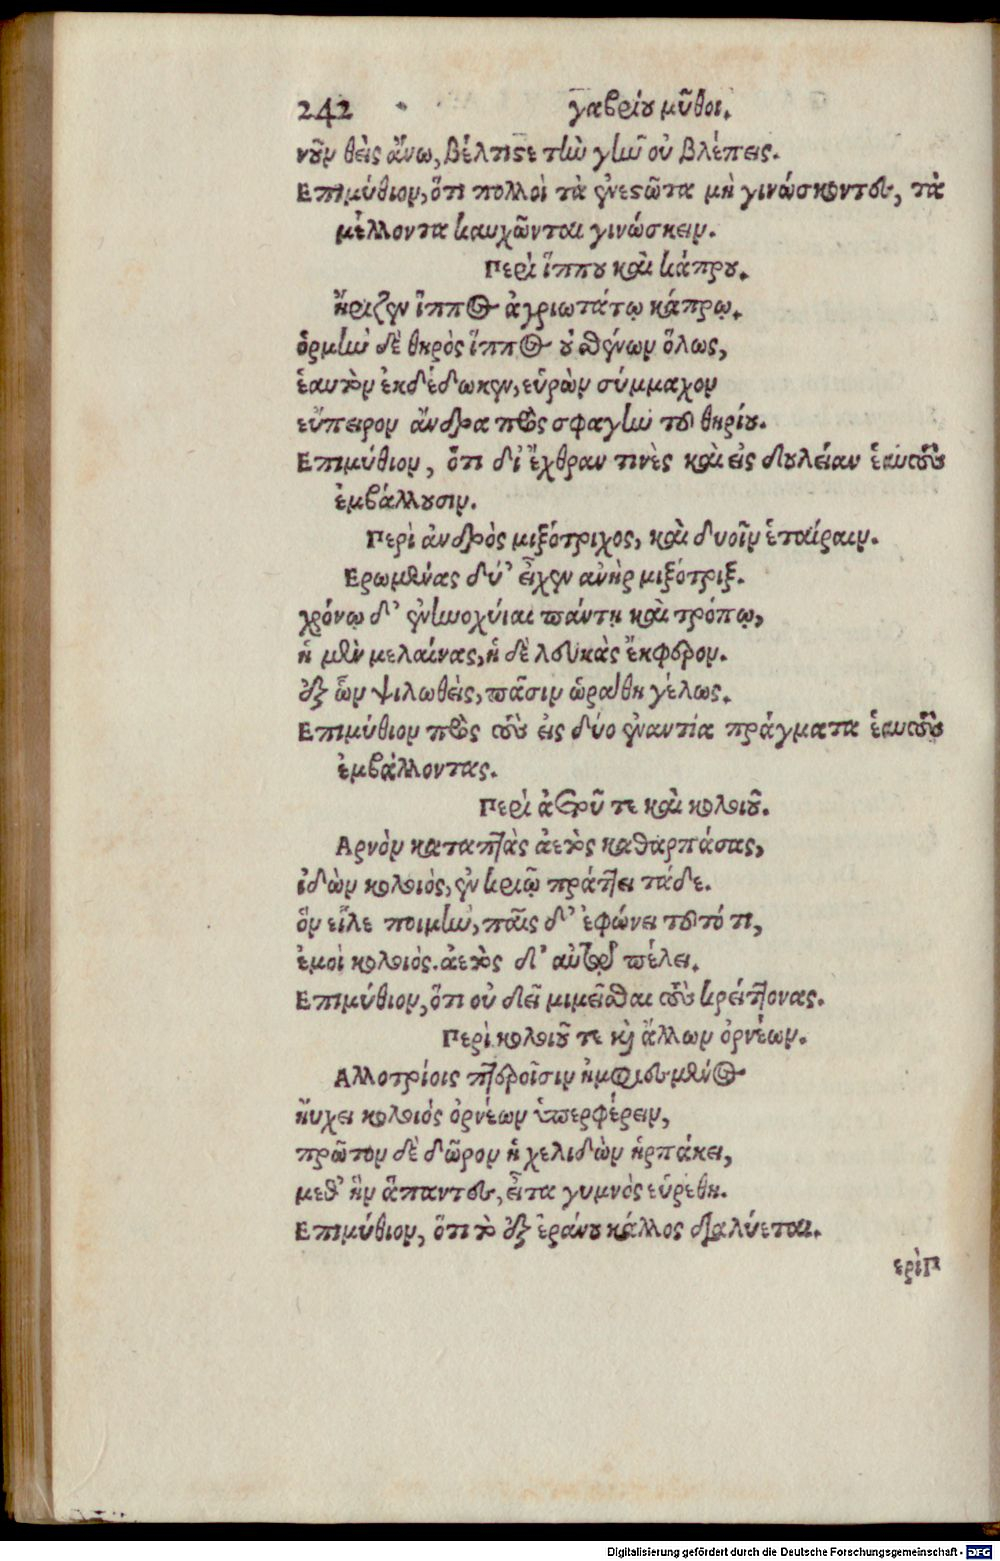 242 γαβρίου μῦθοι.
νοῦν θεὶς ἄνω, βέλτιστε τὴν γῆν οὐ βλέπεις.
Επιμύθιον, ὅτι πολλοὶ τὰ ἐνεστῶτα μὴ γινώσκοντες, τὰ
μέλλοντα καυχῶνται γινώσκειν.
Περὶ ἵππου καὶ κάπρου.
ἤριζεν ἵππος ἀγριωτάτῳ κάπρῳ.
ὁρμὴν δὲ θηρὸς ἵππος οὐ σθένων ὅλως,
ἑαυτὸν ἐκδέδωκεν, εὑρὼν σύμμαχον
εὔπειρον ἄνδρα πρὸς σφαγὴν τοῦ θηρίου.
Επιμύθιον, ὅτι δι' ἔχθραν τινὲς καὶ εἰς δουλείαν ἑαυτοὺς
ἐμβάλλουσιν.
Περὶ ἀνδρὸς μιξότριχος, καὶ δυοῖν ἑταίραιν.
Ερωμένας δύ' εἶχεν ανὴρ μιξότριξ.
χρόνῳ δ' ἐνηνοχυίαι πάντη καὶ τρόπῳ,
ἡ μὲν μελαίνας, ἡ δὲ λευκὰς ἔκφερον.
ἐξ ὧν ψιλωθεὶς, πᾶσιν ὡράθη γέλως.
Επιμύθιον πρὸς τοὺς εἰς δύο ἐναντία πράγματα ἑαυτοὺς
ἐμβάλλοντας.
Περὶ ἀετοῦ τε καὶ κολοιοῦ.
Αρνὸν καταπτὰς ἀετὸς καθαρπάσας,
ἰδὼν κολοιός, ἐν κριῷ πράττει τάδε.
ὃν εἷλε ποιμὴν, παῖς δ' ἐφώνει τοῦτό τι,
ἐμοὶ κολοιός. ἀετὸς δ' αὑτῷ πέλει.
Επιμύθιον, ὅτι οὐ δεῖ μιμεῖσθαι τοὺς κρείττονας.
Περὶ κολοιοῦ τε καὶ ἄλλων ὀρνέων.
Αλλοτρίοις πτεροῖσιν ἠμφιεσμένος
ηὔχει κολοιός ὀρνέων ὑπερφέρειν,
πρῶτον δὲ δῶρον ἡ χελιδὼν ἡρπάκει,
μεθ' ἣν ἅπαντες, εἶτα γυμνὸς εὑρέθη.
Επιμύθιον, ὅτι τὸ ἐξ ἐράνου κάλλος διαλύεται.
ερὶΠ
Digitalisierung gefördert durch die Deutsche Forschungsgemeinschaft - DFG